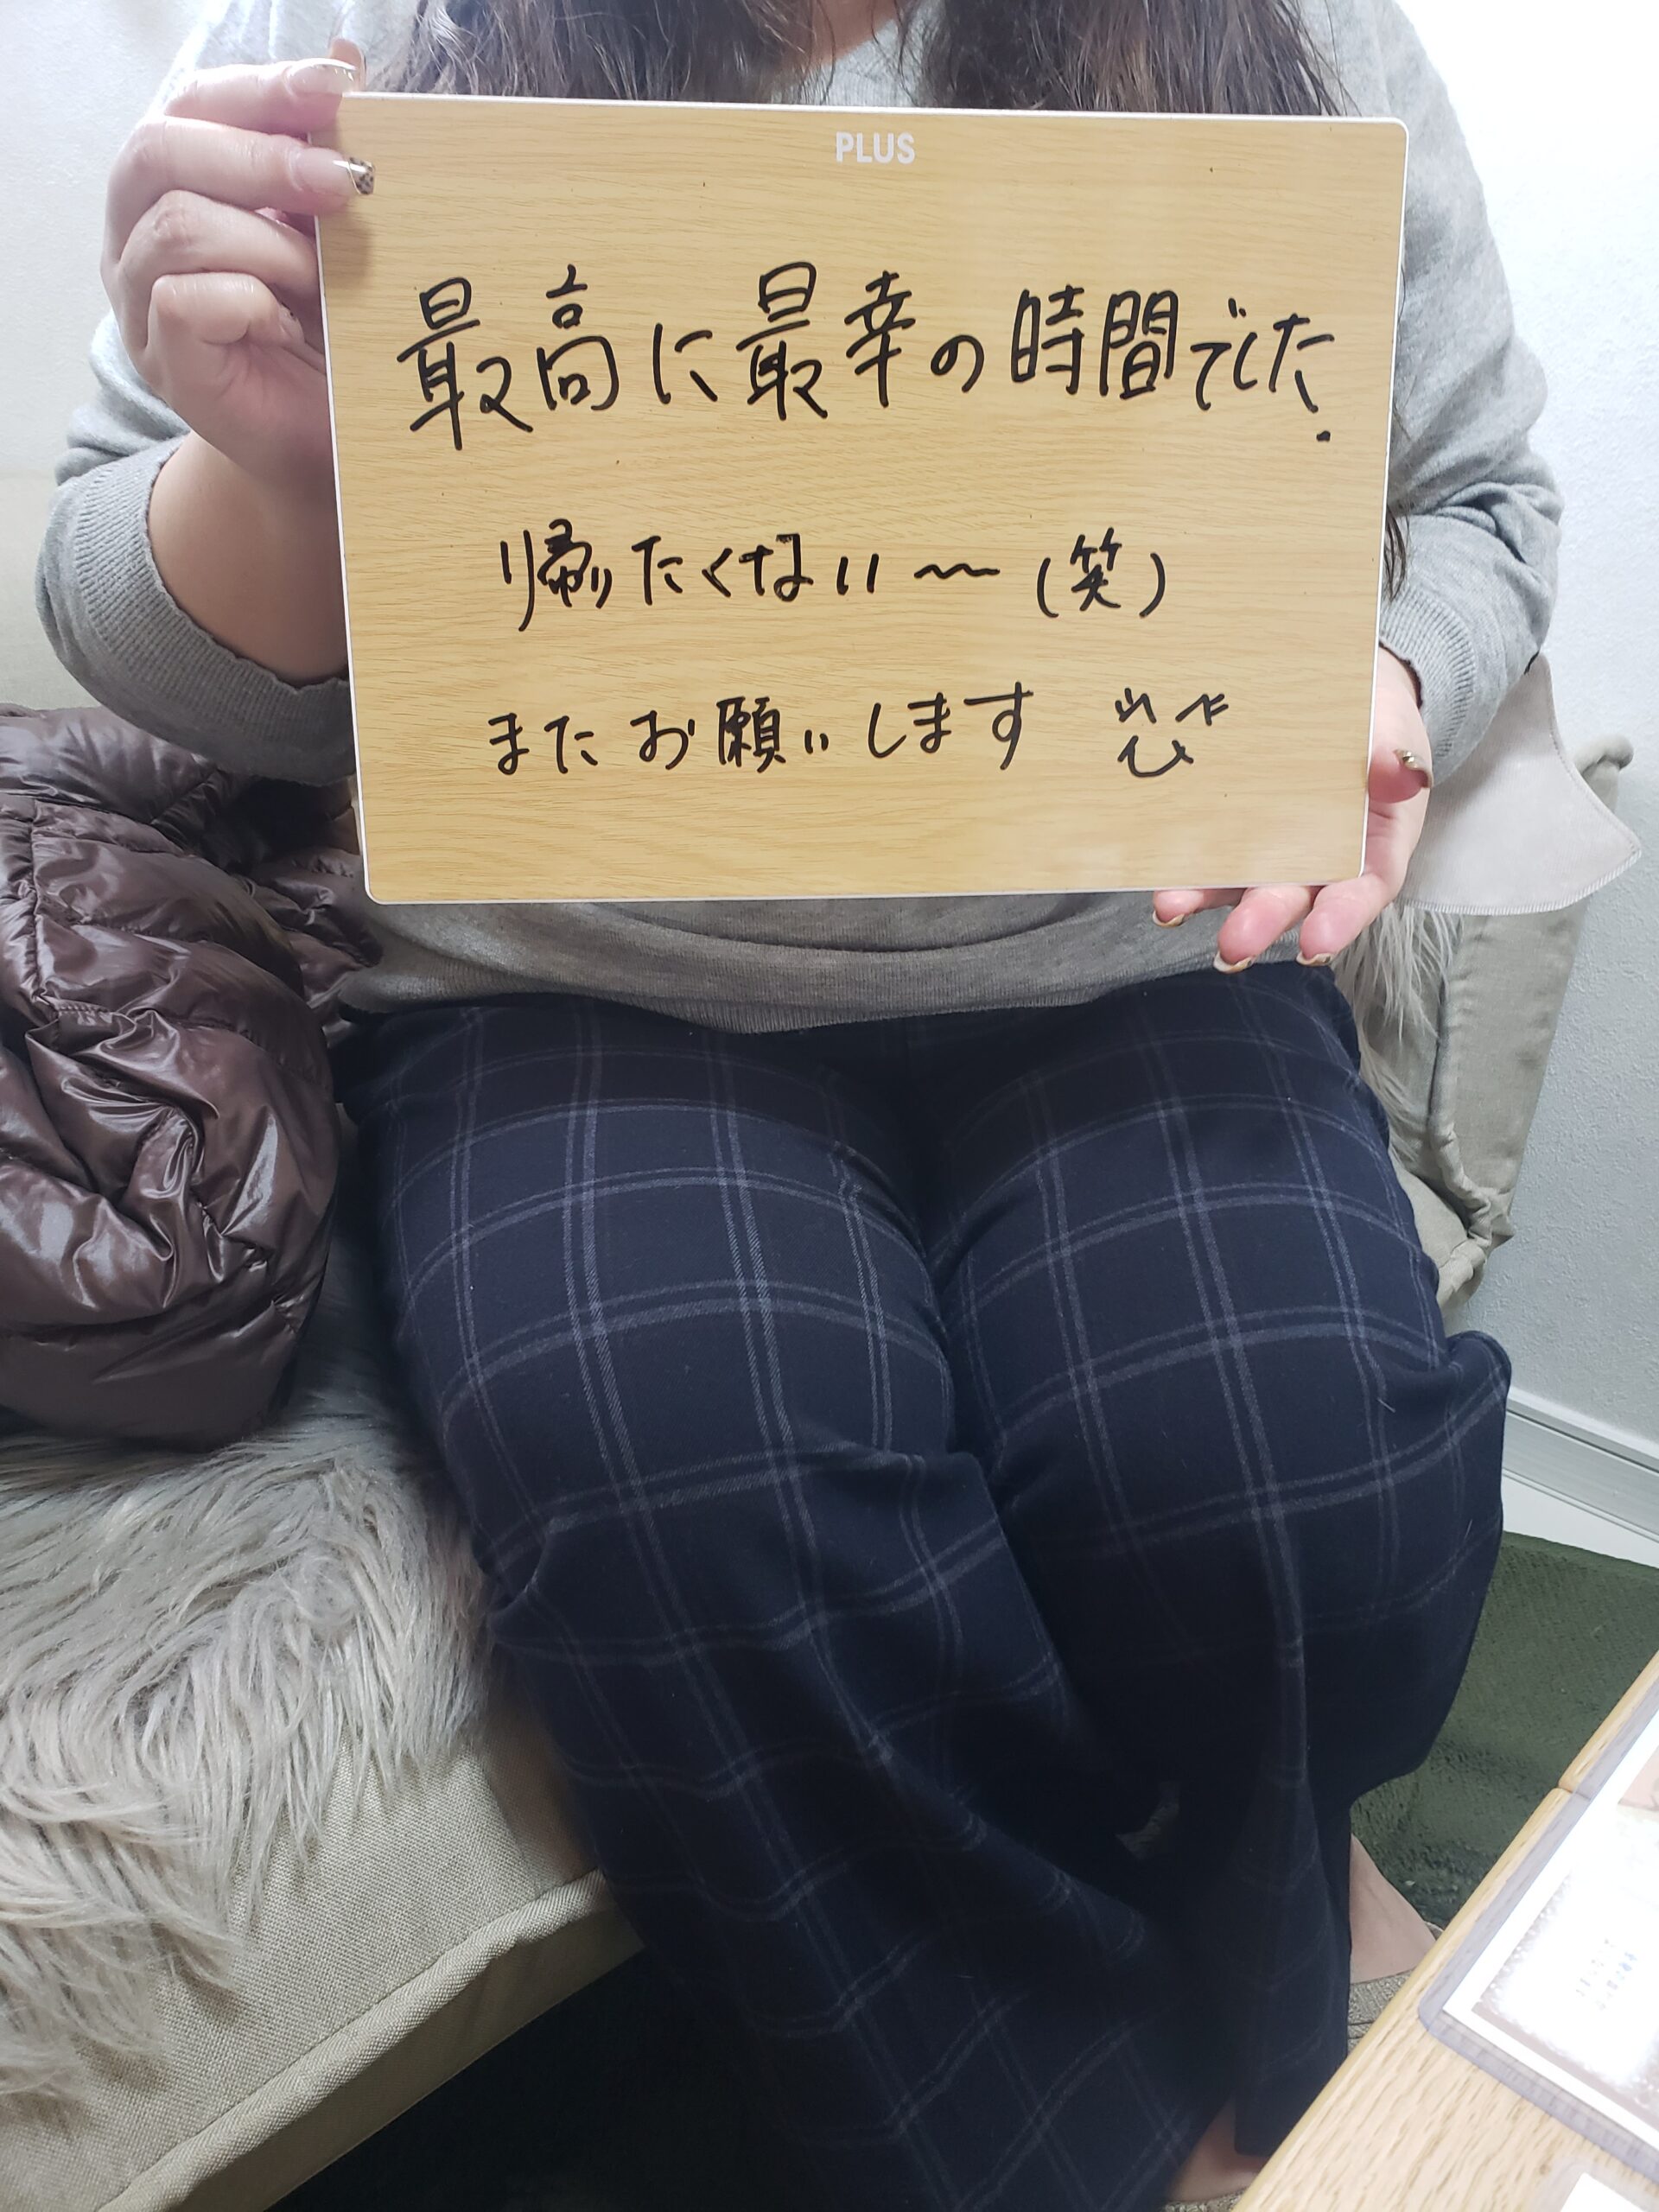 PLUS
最高に最幸の時間でした.
帰りたくない〜(笑)
またお願いします